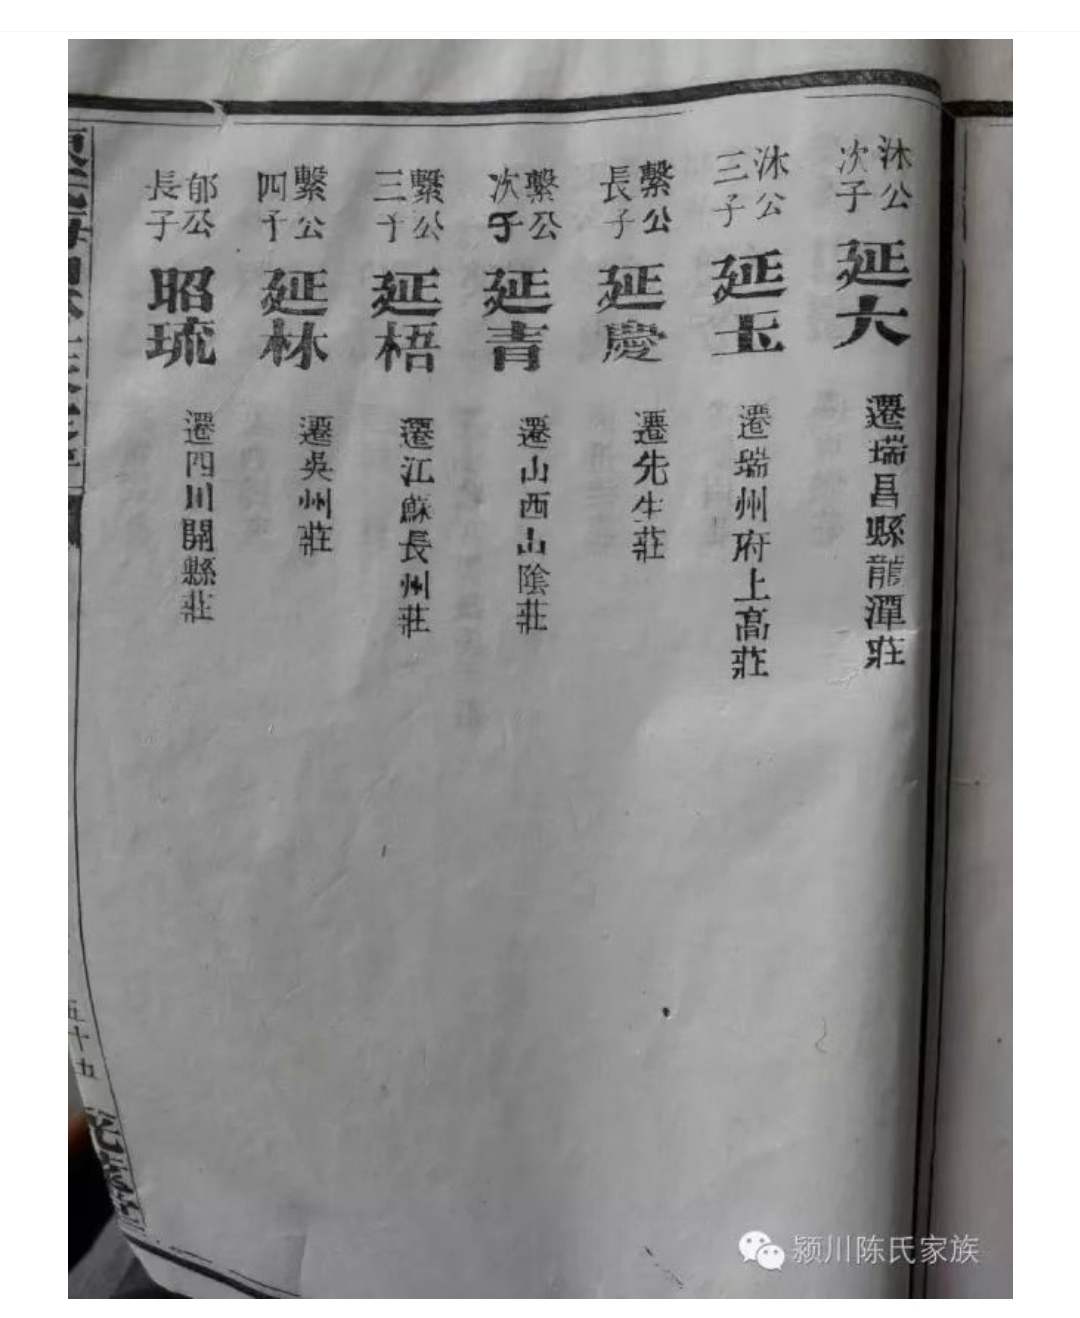 沐公次子延大遷瑞昌縣龍潭莊
沐公三子延玉遷瑞州府上高莊
繫公長子延慶遷先生莊
繫公次子延青遷山西山陰莊
繫公三子延梧遷江蘇長州莊
繫公四子延林遷吳州莊
郁公長子昭琉遷四川開縣莊
五十五
颍川陈氏家族